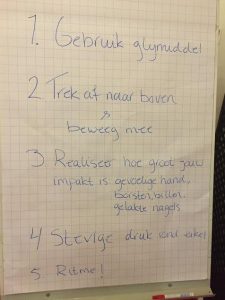 1. Gebruik glijmiddel
2. Trek af naar boven
&
beweeg mee
3. Realiseer hoe groot jouw
impact is: gevoelige hand,
borsten, billen,
gelakte nagels
4 Stevige druk rond eikel
5. Ritme!